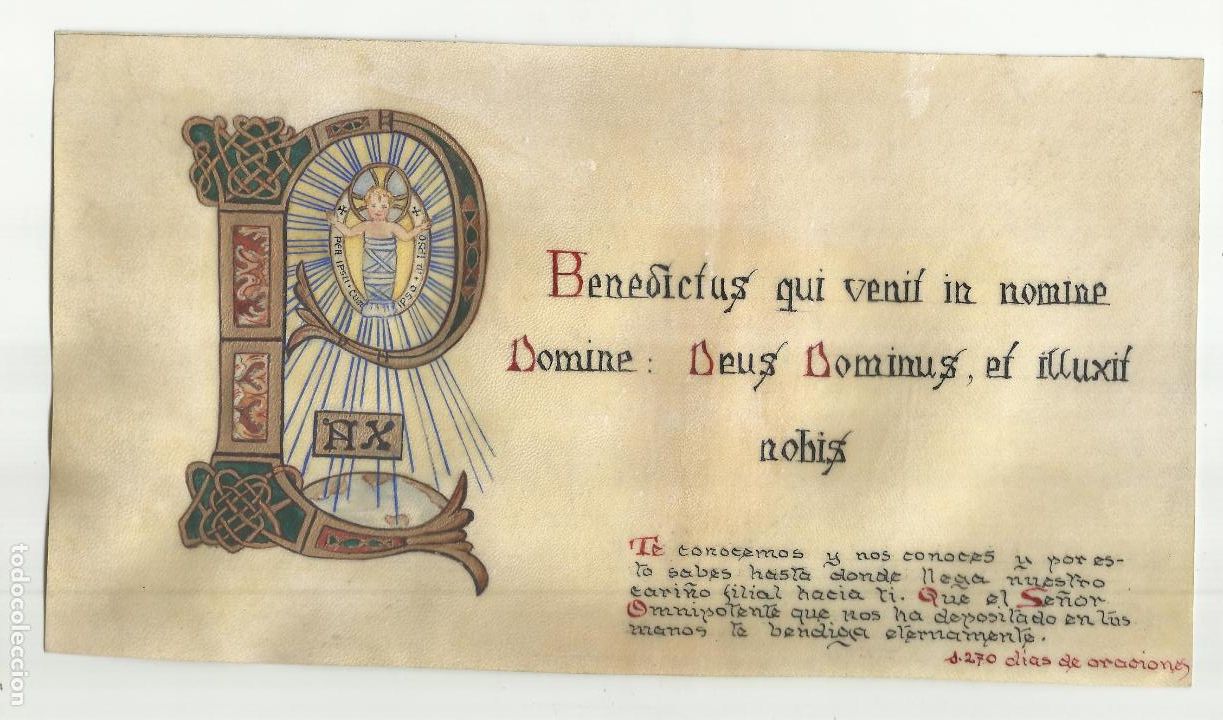 PER IPSU · CUM IPSO · ET IN IPSO
PAX
Benedictus qui venit in nomine
Domine: Deus Dominus, et illuxit
nobis
Te conocemos y nos conoces y por es-
to sabes hasta donde llega nuestro
cariño filial hacia ti. Que el Señor
Omnipotente que nos ha depositado en tus
manos te bendiga eternamente.
1.270 días de oraciones
todocoleccion